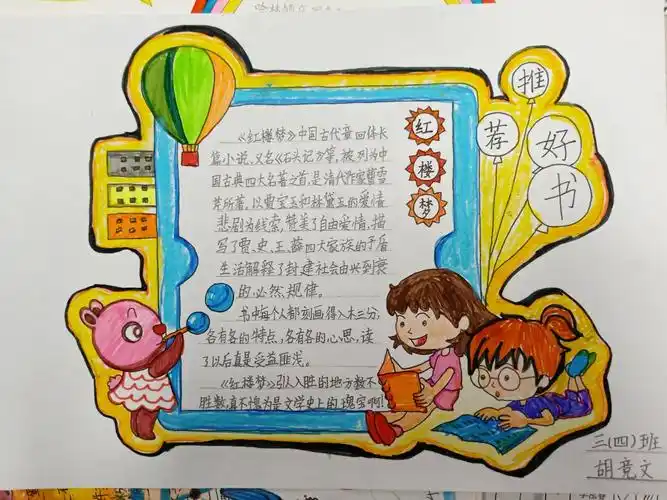 推
荐
好
书
红
楼
梦
《红楼梦》中国古代章回体长
篇小说,又名《石头记》等,被列为中
国古典四大名著之首,是清代作家曹雪
芹所著,以贾宝玉和林黛玉的爱情
悲剧为线索,赞美了自由爱情,描
写了贾、史、王、薛四大家族的矛盾
生活解释了封建社会由兴到衰
的必然规律。
书中每个人都刻画得入木三分,
各有各的特点,各有各的心思,读
了以后真是受益匪浅。
《红楼梦》引人入胜的地方数不
胜数,真不愧为是文学史上的瑰宝啊!
三(四)班
胡竟文